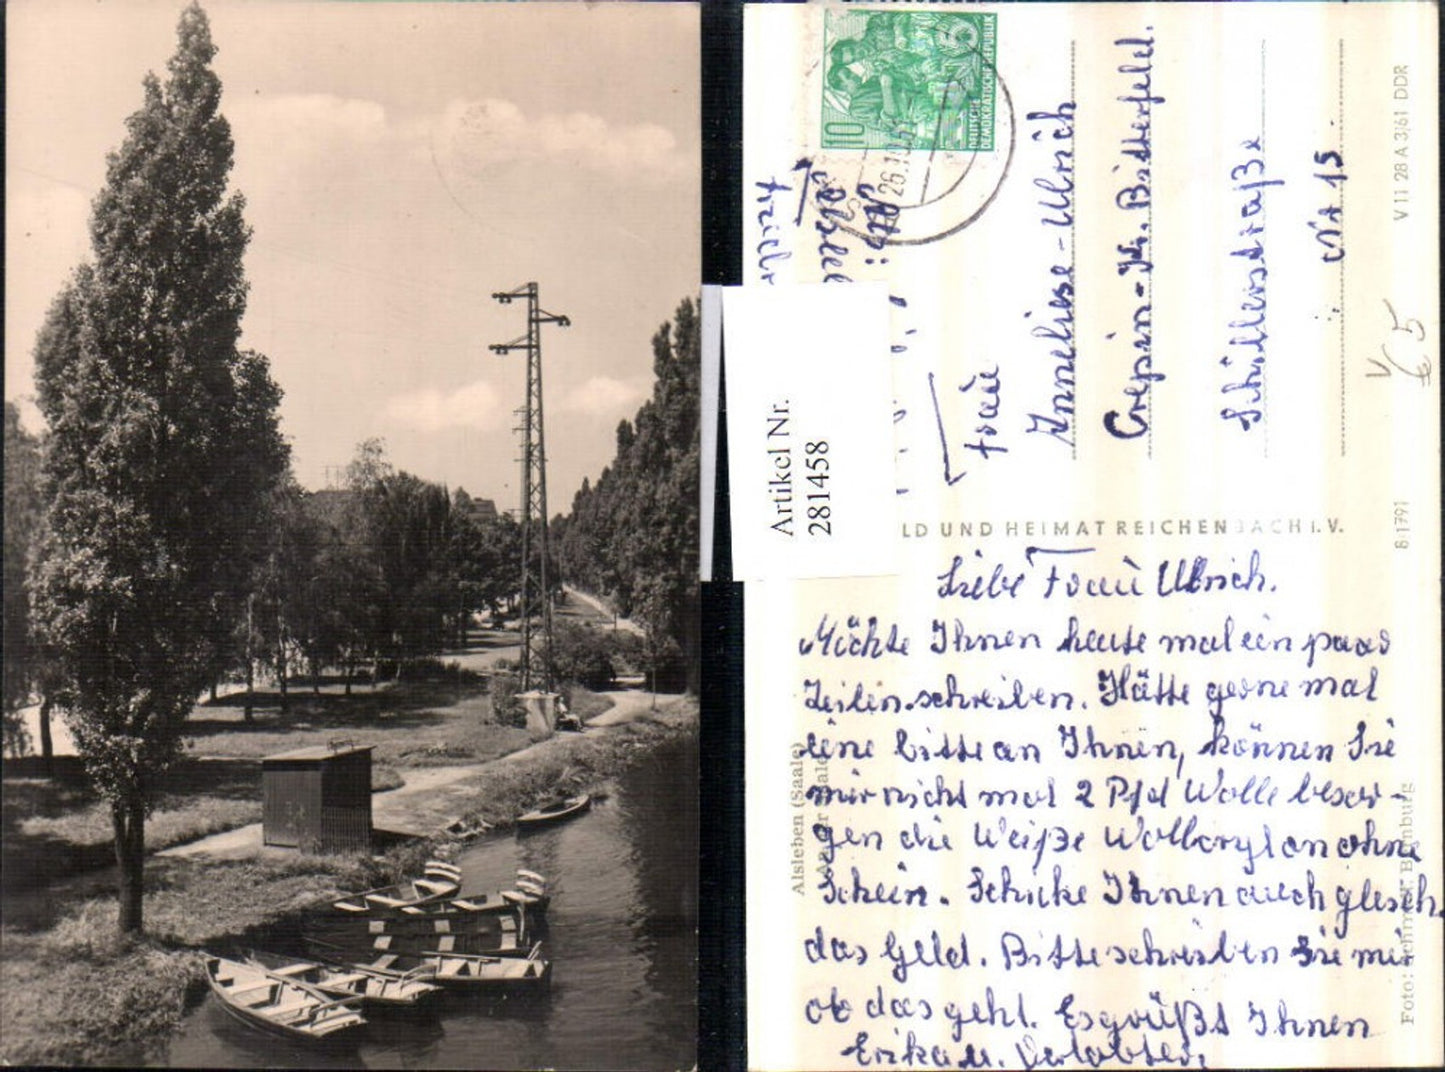 Liebe Frau Ulrich.
Möchte Ihnen heute mal ein paar
Zeilen schreiben. Hätte gerne mal
eine bitte an Ihnen, können Sie
mir nicht mal 2 Pfd Wolle besor-
gen die Weiße Wollcrylon ohne
Schein. Schicke Ihnen auch gleich
das Geld. Bitte schreiben Sie mir
ob das geht. Es grüßt Ihnen
Erika u. Verlobter.
Frau
Anneliese-Ulrich
Greppin-Kr. Bitterfeld.
Schillerstraße
Nr 15
Abs:
10
5
DEUTSCHE
DEMOKRATISCHE REPUBLIK
26.10
Artikel Nr.
281458
LD UND HEIMAT REICHENBACH I. V.
V 11 28 A 3/61 DDR
8/1791
€ 5
Alsleben (Saale)
An der Saale
Foto: Schmidt, Bernburg